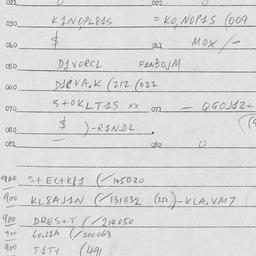 021 0 022 0
030 K1NOPL81S = KO,NOP1S (009
040 $ 041 MOX /-
050 D1VORCL F1NBOJM
060 D1PVA.K (212 (022
070 S+OKLT1S xx 071 -
080 $ )-R1NDL .
081 - 082 0
900 S+EC+K81 (/145020
900 KL8AJ1N (/131032 (252)-KLA,VM7
900 DRES+T (/214050
900 60.11A (/200063
900 T1T+ (491